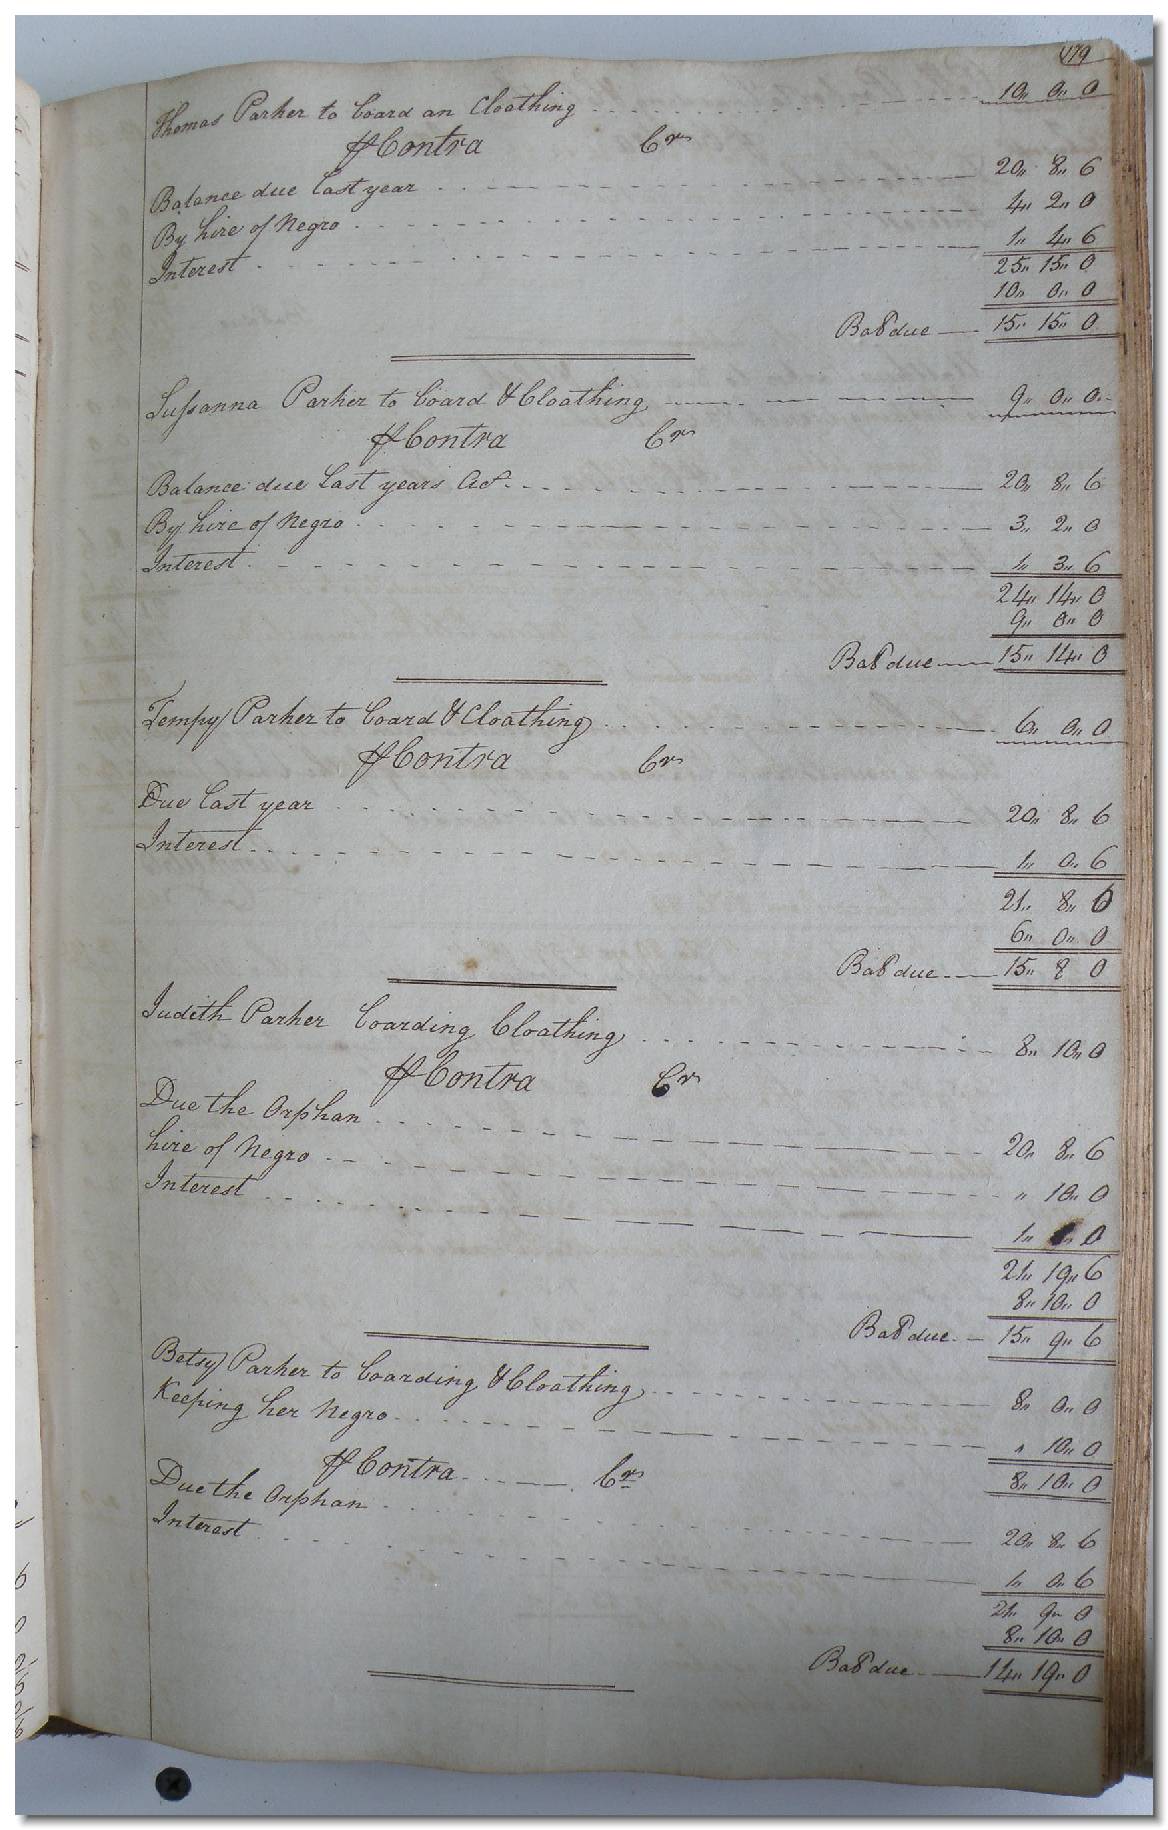 179
Thomas Parker to board an Cloathing 10,, 0,, 0
⅌ Contra Cr
Balance due last year 20,, 8,, 6
By hire of Negro 4,, 2,, 0
Interest 1,, 4,, 6
25,, 15,, 0
10,, 0,, 0
Bal due 15,, 15,, 0
Sussanna Parker to board & Cloathing 9,, 0,, 0
⅌ Contra Cr
Balance due last years Act. 20,, 8,, 6
By hire of Negro 3,, 2,, 0
Interest 1,, 3,, 6
24,, 14,, 0
9,, 0,, 0
Bal due 15,, 14,, 0
Tempy Parker to board & Cloathing 6,, 0,, 0
⅌ Contra Cr
Due last year 20,, 8,, 6
Interest 1,, 0,, 6
21,, 8,, 6
6,, 0,, 0
Bal due 15,, 8 0
Judith Parker boarding Cloathing 8,, 10,, 0
⅌ Contra Cr
Due the Orphan 20,, 8,, 6
hire of Negro ,, 10,, 0
Interest 1,, 0
21,, 19,, 6
8,, 10,, 0
Bal due 15,, 9,, 6
Betsy Parker to boarding & Cloathing 8,, 0,, 0
Keeping her Negro ,, 10,, 0
8,, 10,, 0
⅌ Contra Cr
Due the Orphan 20,, 8,, 6
Interest 1,, 0,, 6
21,, 9,, 0
8,, 10,, 0
Bal due 14,, 19,, 0